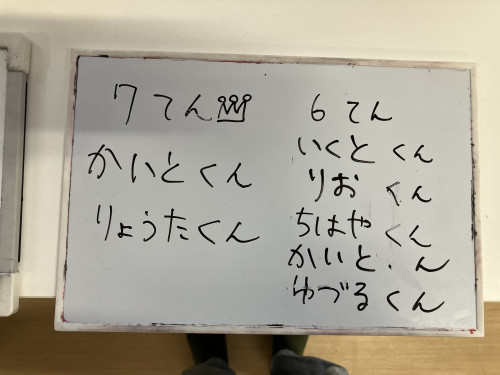 7てん
かいとくん
りょうたくん
6てん
いくとくん
りおくん
ちはやくん
かいと.ん
ゆづるくん